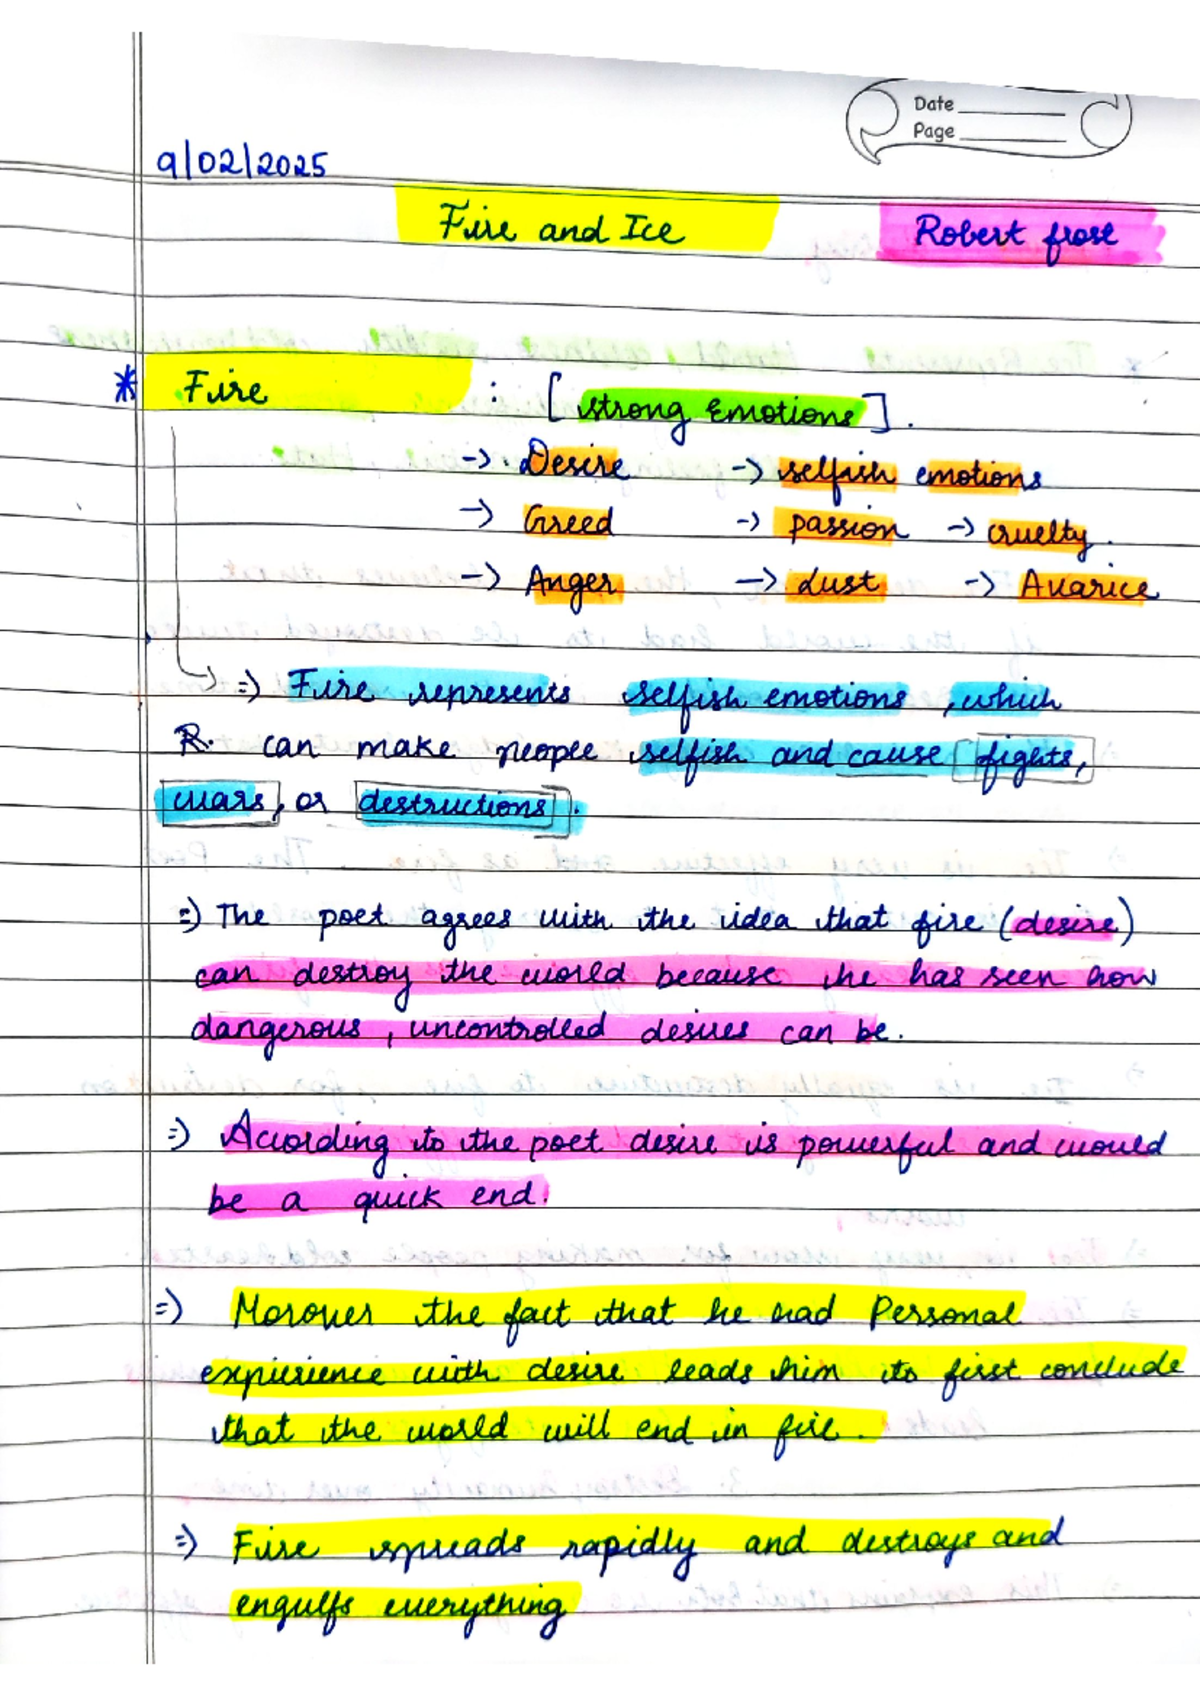 Date
Page
9/02/2025
Fire and Ice Robert frost
* Fire : [strong Emotions].
-> Desire -> selfish emotions
-> Greed -> passion -> cruelty.
-> Anger -> Lust -> Avarice
=) Fire represents selfish emotions, which
R. can make people selfish and cause fights,
wars, or destructions].
=) The poet agrees with the idea that fire (desire)
can destroy the world because he has seen how
dangerous, uncontrolled desires can be.
=) According to the poet desire is powerful and would
be a quick end.
=) Morover the fact that he had Personal
expierience with desire leads him to first conclude
that the world will end in fire.
=) Fire spreads rapidly and destroys and
engulfs everything